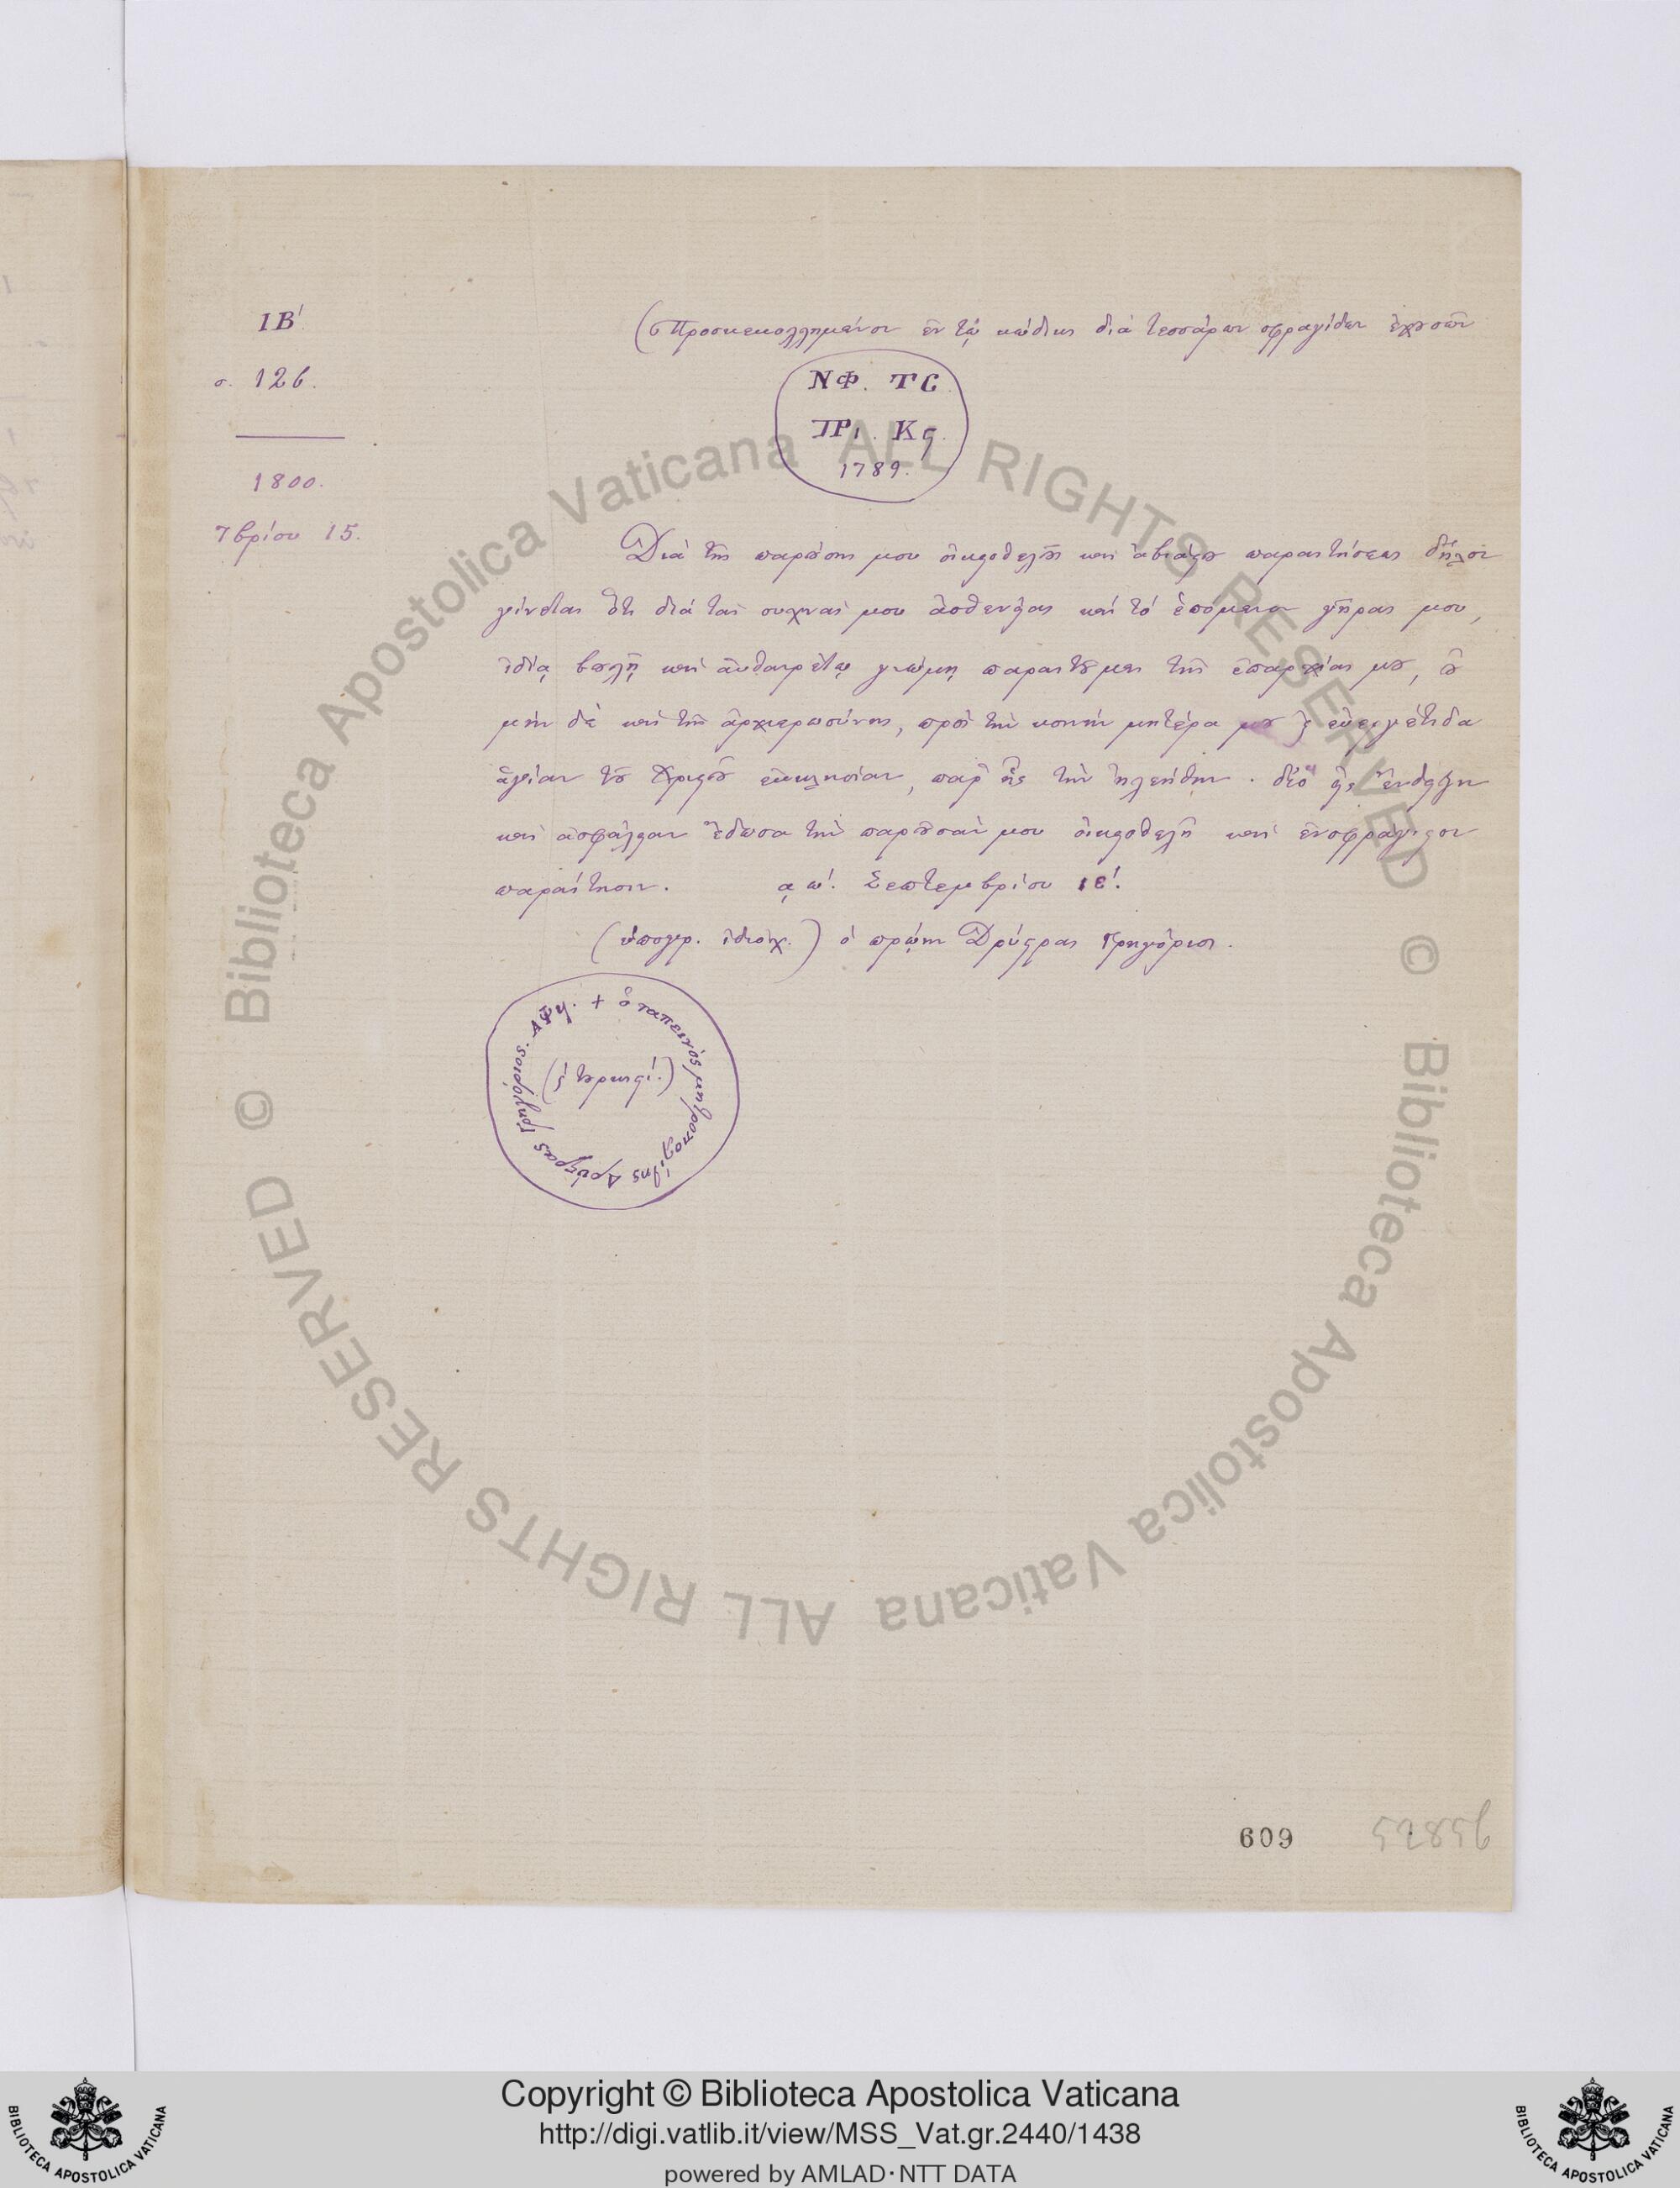 ΙΒ΄.
σ. 126.
1800.
7βρίου 15.
(Προσκεκολλημένον ἐν τῷ κώδικι διά τεσσάρων σφραγίδων ἐχουσῶν
ΝΦ. ΤC
ΠΡΙ. Κϛ.
1789.
Διά τῆς παρούσης μου οἰκειοθελοῦς καί ἀβιάστου παραιτήσεως δῆλον
γίνεται ὅτι διά τάς συχνάς μου ἀσθενείας καί τό ἑπόμενον γῆρας μου,
ἰδίᾳ βουλῇ καί αὐθαιρέτῳ γνώμῃ παραιτοῦμαι τῆς ἐπαρχίας μου, οὐ
μήν δέ καί τῆς ἀρχιερωσύνης, πρός τήν κοινήν μητέρα μου ϗ εὐεργέτιδα
ἁγίαν τοῦ Χριστοῦ ἐκκλησίαν, παρ' ἧς τήν ἠλεήθην. διό εἰς ἔνδειξιν
καί ἀσφάλειαν ἔδωσα τήν παροῦσάν μου οἰκειοθελῆ καί ἐνσφράγιστον
παραίτησιν. ͵αω΄. Σεπτεμβρίου ιε΄.
(ὑπογρ. ἰδιοχ.) ὁ πρώην Δρύστρας Γρηγόριος.
+ ὁ ταπεινός μητροπολίτης Δρύστρας Γρηγόριος.
609
Copyright © Biblioteca Apostolica Vaticana
http://digi.vatlib.it/view/MSS_Vat.gr.2440/1438
powered by AMLAD·NTT DATA
BIBLIOTECA APOSTOLICA VATICANA
BIBLIOTECA APOSTOLICA VATICANA
© Biblioteca Apostolica Vaticana ALL RIGHTS RESERVED
© Biblioteca Apostolica Vaticana ALL RIGHTS RESERVED